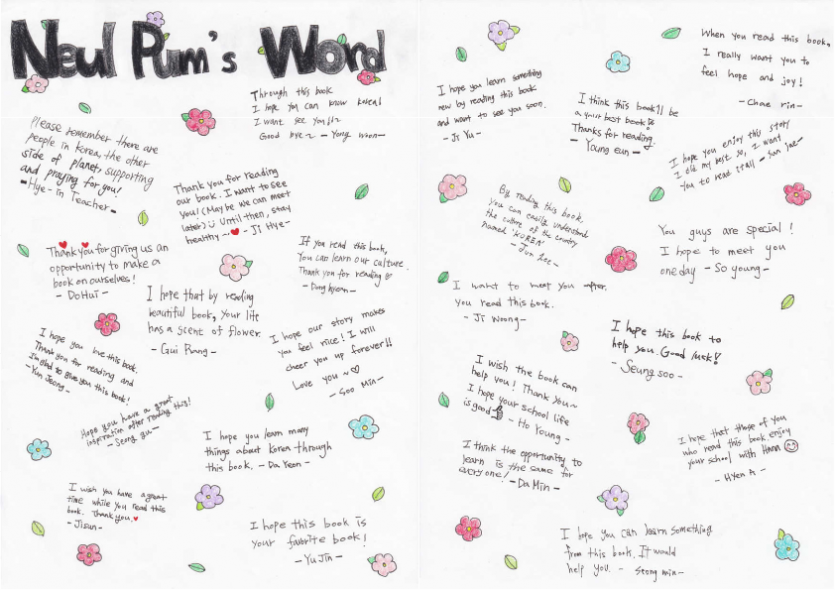 Neul Pum's Word
Through this book
I hope you can know Korea!
I want see you!!~
Good bye~ - Yong woon-
Please remember there are
people in Korea, the other
side of planet, supporting
and praying for you!
-Hye-in Teacher-
Thank you for reading
our book. I want to see
you! (Maybe we can meet
later) Until then, stay
healthy~ - Ji Hye-
Thank you for giving us an
opportunity to make a
book on ourselves!
- DoHui -
If you read this book,
You can learn our culture.
Thank you for reading
I hope that by reading
beautiful book, your life
has a scent of flower.
- Gui Rang -
I hope you love this book.
Thank you for reading and
I'm glad to give you this book!
- Yun Jeong -
I hope our story makes
you feel nice! I will
cheer you up forever!!
Love you ~
- Soo Min -
Hope you have a great
inspiration after reading this!
- Seong yu -
I hope you learn many
things about Korea through
this book. - Da Yeon -
I wish you have a great
time while you read this
book. Thank you.
- Jieun -
I hope this book is
your favorite book!
- YuJin -
I hope you learn something
new by reading this book
and want to see you soon.
- Ji Yu -
I think this book'll be
a your best book!
Thanks for reading.
- Young eun -
When you read this book,
I really want you to
feel hope and joy!
- Chae rin -
I hope you enjoy this story
I did my best so, I want
you to read it all
By reading this book,
You can easily understand
the culture of the country
named 'KOREA'
You guys are special!
I hope to meet you
one day - So young -
I want to meet you after
you read this book.
- Ji Woong -
I hope this book to
help you. Good luck!
- Seung soo -
I wish the book can
help you! Thank you~
I hope your school life
is good - Ho Young -
I think the opportunity to
learn is the same for
everyone! - Da Min -
I hope that those of you
who read this book enjoy
your school with
- Hyen A -
I hope you can learn something
from this book. It would
help you. - Seong min -